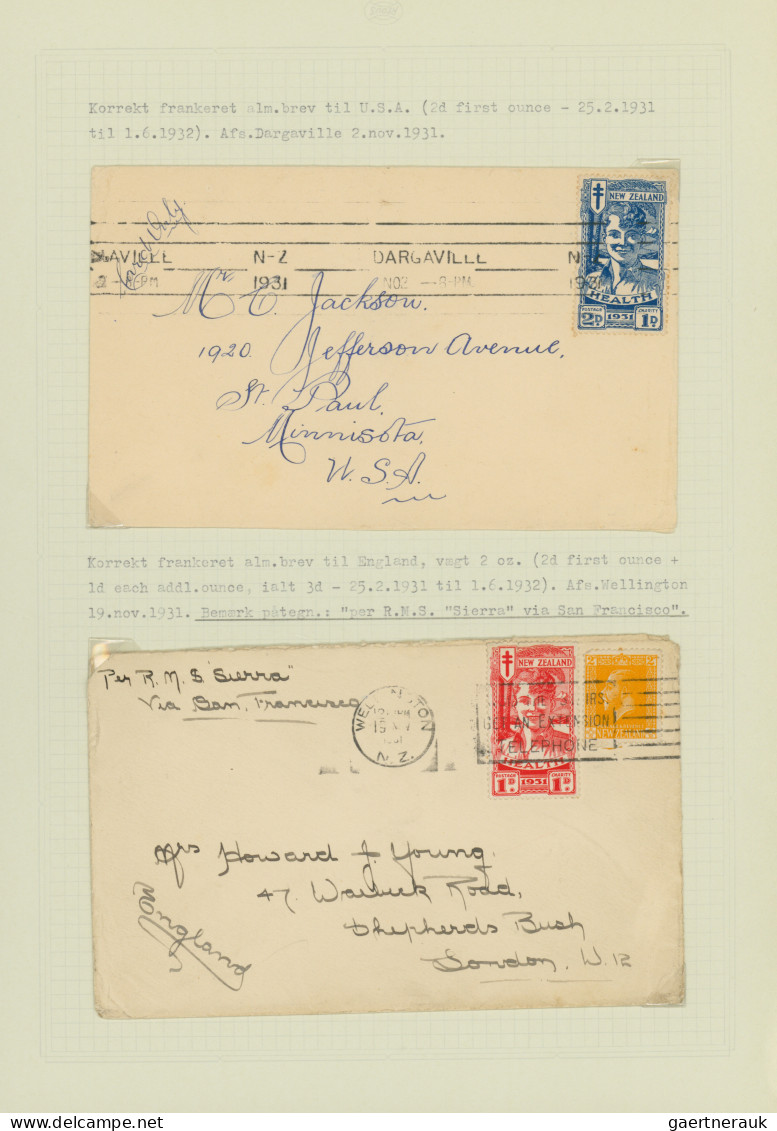 Korrekt frankeret alm.brev til U.S.A. (2d first ounce - 25.2.1931
til 1.6.1932). Afs.Dargaville 2.nov.1931.
Card Only
NEW ZEALAND
HEALTH
POSTAGE 1931 CHARITY
2D. 1D.
AVILLE N-Z DARGAVILLE
1931 NO2 -8-PM 1931
Mr E. Jackson.
1920. Jefferson Avenue,
St. Paul.
Minnisota.
U.S.A.
Korrekt frankeret alm.brev til England, vægt 2 oz. (2d first ounce +
1d each addl.ounce, ialt 3d - 25.2.1931 til 1.6.1932). Afs.Wellington
19.nov.1931. Bemærk påtegn.: "per R.M.S. "Sierra" via San Francisco".
Per R.M.S "Sierra"
Via San Francisco
NEW ZEALAND
HEALTH
POSTAGE 1931 CHARITY
1D. 1D.
NEW ZEALAND
N.Z.
GET AN EXTENSION
TELEPHONE
Mrs Howard J. Young.
47, Warwick Road,
Shepherds Bush
London, W.12
England
gaertnerauk